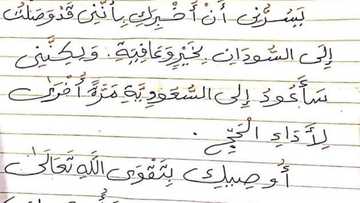 يَسُرُّنِي أَنْ أُخْبِرَكِ بِأَنَّنِي قَدْ وَصَلْتُ
إِلَى السُّودَانِ بِخَيْرٍ وَعَافِيَةٍ. وَلِكِنَّنِي
سَأَعُودُ إِلَى السُّعُودِيَّةِ مَرَّةً أُخْرَى
لِأَدَاءِ الْحَجِّ.
أُوصِيكِ بِتَقْوَى اللَّهِ تَعَالَى